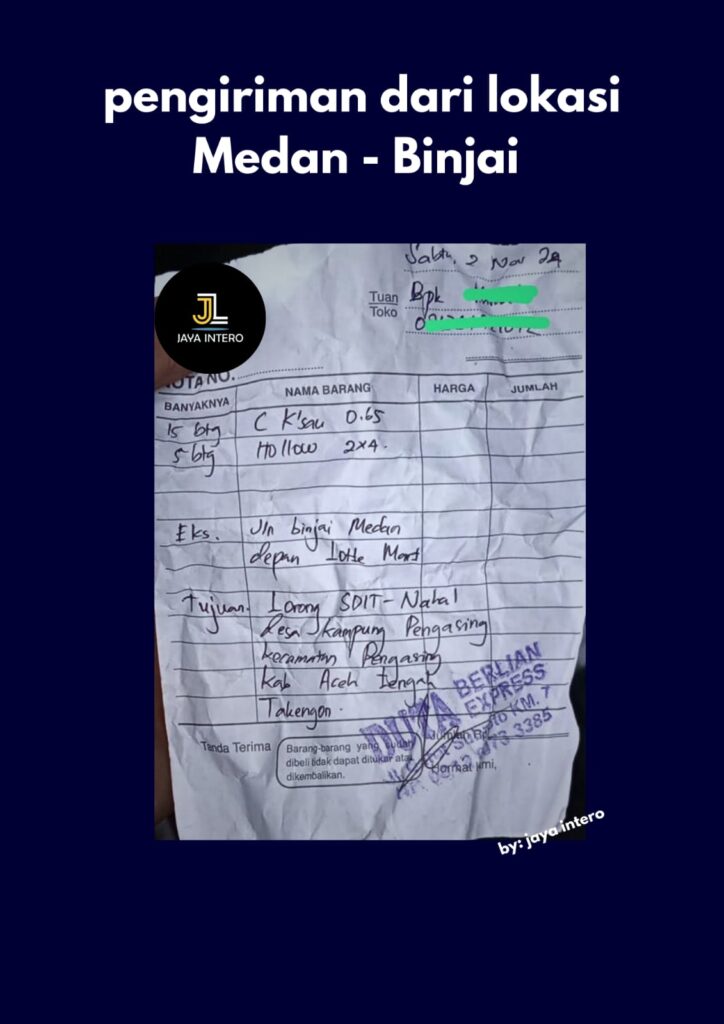 pengiriman dari lokasi
Medan - Binjai
JL
JAYA INTERO
Sabtu, 2 Nov 24
Tuan Bpk
Toko
NOTA NO.
BANYAKNYA NAMA BARANG HARGA JUMLAH
15 btg C K'sau 0.65
5 btg Hollow 2x4.
Eks. Jln binjai Medan
depan Lotte Mart
Tujuan. Lorong SDIT-Nahal
desa kampung Pengasing
kecamatan Pengasing
Kab Aceh tengah
Takengon.
DUTA BERLIAN
EXPRESS
KM. 7
3385
Tanda Terima
Barang-barang yang sudah
dibeli tidak dapat ditukar atau
dikembalikan.
Jumlah Rp.
Hormat kami,
by: jaya intero